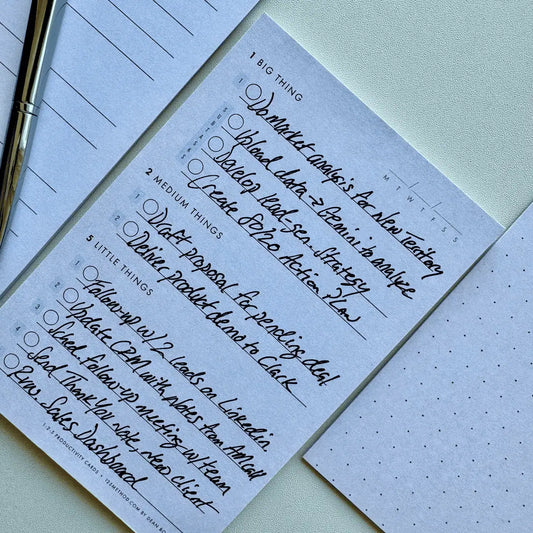 1 BIG THING
M T W T F S S
1 Do market analysis for New Territory
Upload data → Gemini to analyze
Develop lead gen. strategy
Create 80/20 Action Plan
2 MEDIUM THINGS
1 Draft proposal for pending deal
2 Deliver product demo to Clack
5 LITTLE THINGS
1 Follow-up w/ 2 leads on LinkedIn
2 Update CRM with notes from AM call
3 Sched. follow-up meeting w/ team
4 Send Thank You note, new client
5 Rvw. Sales Dashboard
1-2-5 PRODUCTIVITY CARDS • 125METHOD.COM BY DEAN BO